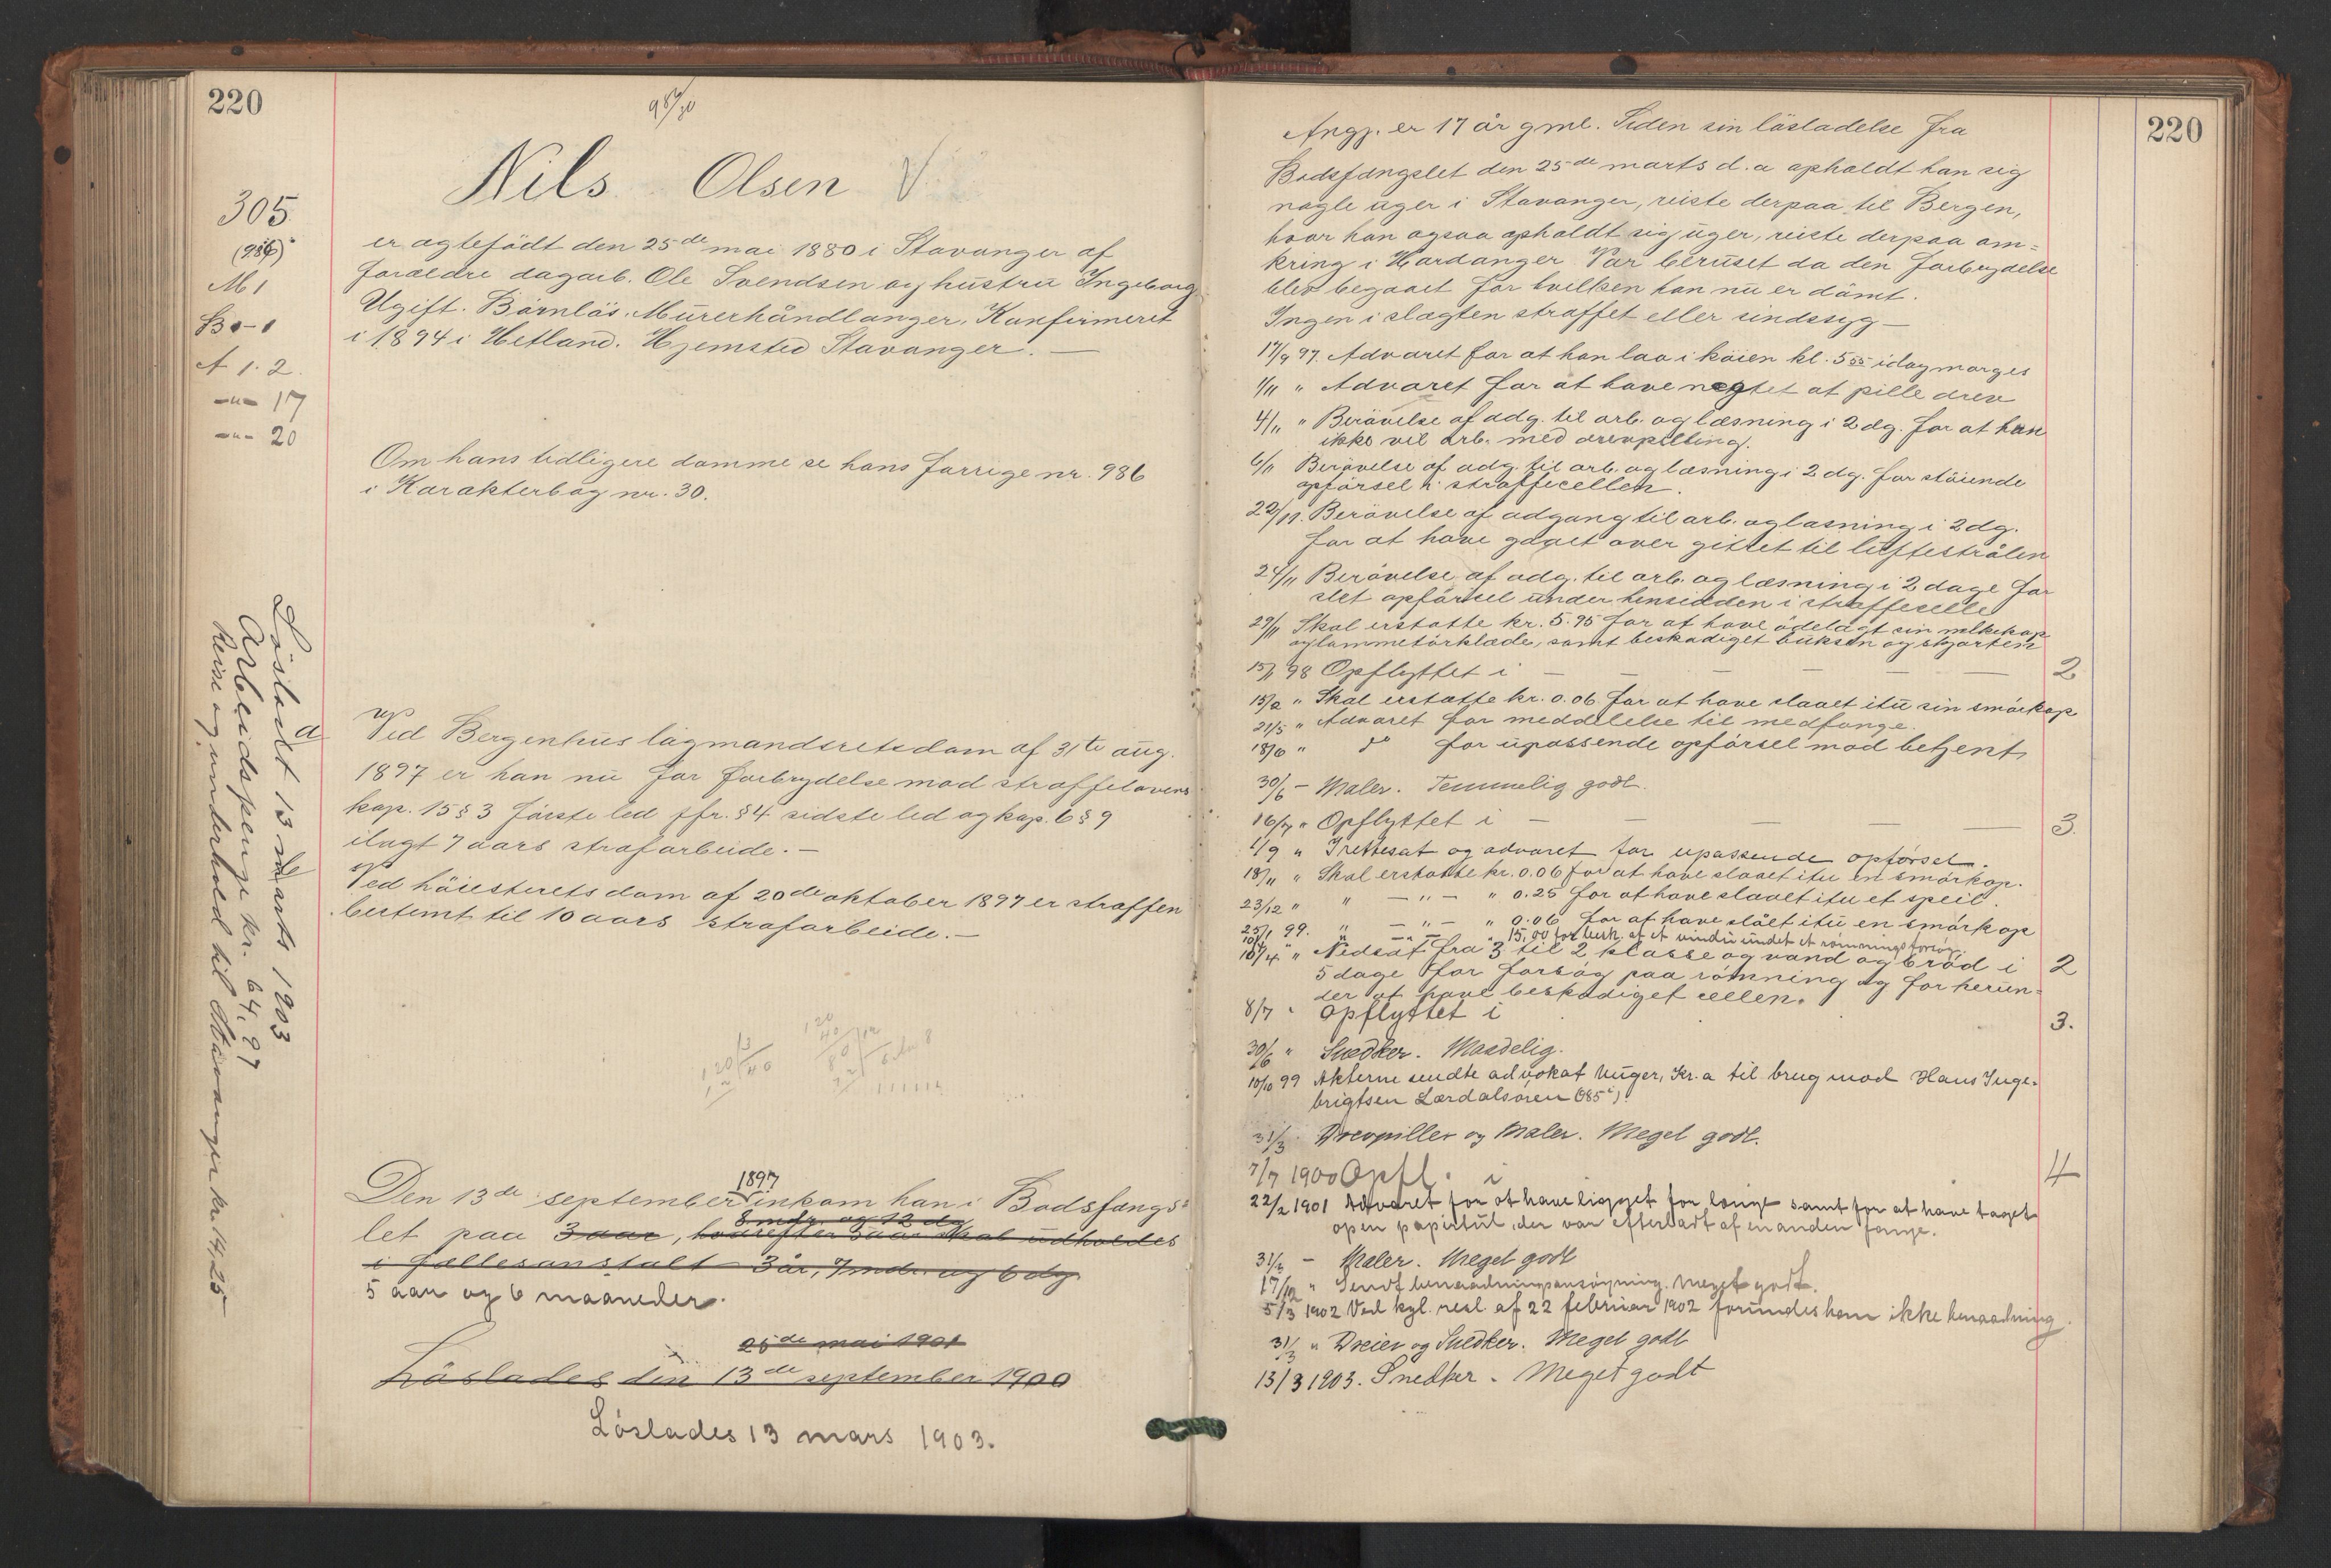 220
986/30
Nils Olsen V
305
(986)
M 1
B 1-1
A 1. 2.
-"- 17
-"- 20
er ægtefödt den 25de mai 1880 i Stavanger af
forældre dagarb. Ole Svendsen og hustru Ingeborg
Ugift. Börnlös. Mürerhåndlanger. Konfirmeret
i 1894 i Hetland. Hjemsted Stavanger. —
Om hans tidligere domme se hans forrige nr. 986
i Karakterbog nr. 30.
Ved Bergenhus lagmandsretsdom af 31te aug.
1897 er han nu for forbrydelse mod straffelovens
kap. 15 § 3 förste led jfr. § 4 sidste led og kap. 6 § 9
ilagt 7 aars strafarbeide. —
Ved höiesterets dom af 20de oktober 1897 er straffen
bestemt til 10 aars strafarbeide. —
Lösladt d 13 de marts 1903
Arbeidspenge kr. 64,97
Reise og underhold til Stavanger kr. 14,25
1897
Den 13de september inkom han i Bodsfængs=
8 mdr. og 12 dg
let paa 3 aar, hvorefter 5 aar skal udholdes
i fællesanstalt 3 år, 7 mdr. og 6 dg
5 aar og 6 maaneder.
25de mai 1901
Löslades den 13de september 1900
Löslades 13 mars 1903.
220
Angj. er 17 år gml. Siden sin lösladelse fra
Bodsfængslet den 25de marts d. a opholdt han sig
nogle uger i Stavanger, reiste derpaa til Bergen,
hvor han ogsaa opholdt sig uger, reiste derpaa om=
kring i Hardanger Var beruset da den forbrydelse
blev begaaet for hvilken han nu er dömt.
Ingen i slægten straffet eller sindssyg —
17/9 97. Advaret for at han laa i köien kl. 5 55 idag morges
1/11 " Advaret for at have negtet at pille drev
4/11 " Berövelse af adg. til arb. og læsning i 2 dg. for at han
ikke vil arb. med drevpilling.
6/11 Berövelse af adg. til arb. og læsning i 2 dg. for stöiende
opförsel i straffecellen.
22/11. Berövelse af adgang til arb. og læsning i 2 dg.
for at have gaaet over gittret til luftestrålen
24/11 Berövelse af adg. til arb. og læsning i 2 dage for
slet opförsel under hensidden i straffecelle
29/11 Skal erstatte kr. 5.95 for at have ödelagt sin melkekop
og lommetörklæde, samt beskadiget buksen og skjorten
15/1 98 Opflyttet i — — — — — 2
15/2 " Skal erstatte kr. 0.06 for at have slaaet itu sin smörkop
21/5 " Advaret for meddelelse til medfange.
18/6 " do for upassende opförsel mod betjent,
30/6 — Maler. Temmelig godt.
16/7 " Opflyttet i — — — — — 3.
1/9 " Irettesat og advaret for upassende opförsel.
18/11 " Skal erstatte kr. 0.06 for at have slaaet itu en smörkop.
23/12 " " — " — " 0.25 for at have slaaet itu et speil.
25/1 99. " — " — " 0.06 for at have slået itu en smörkop
10/4 " — " — " 15,00 for besk. af et vindu under et römningsforsög.
10/4 " Nedsat fra 3 til 2 klasse og vand og bröd i 2
5 dage for forsög paa römning og for herun=
der at have beskadiget cellen.
8/7 " Opflyttet i 3.
30/6 " Snedker. Maadelig.
10/10 99 Akterne sendte advokat Unger, Kr.a til brug mod Hans Inge=
brigtsen Lærdalsören (985).
31/3 Drevpiller og Maler. Meget godt.
7/7 1900 Opfl. i 4
22/2 1901 Advaret for at have ligget for længe samt for at have taget
op en papirtut der var efterladt af en anden fange.
31/3 — Maler. Meget godt
17/12 " Sendt benaadningsansögning. Meget godt.
5/3 1902 Ved kgl. resl. af 22 februar 1902 forundes ham ikke benaadning.
31/3 " Dreier og Snedker. Meget godt
13/3 1903. Snedker. Meget godt